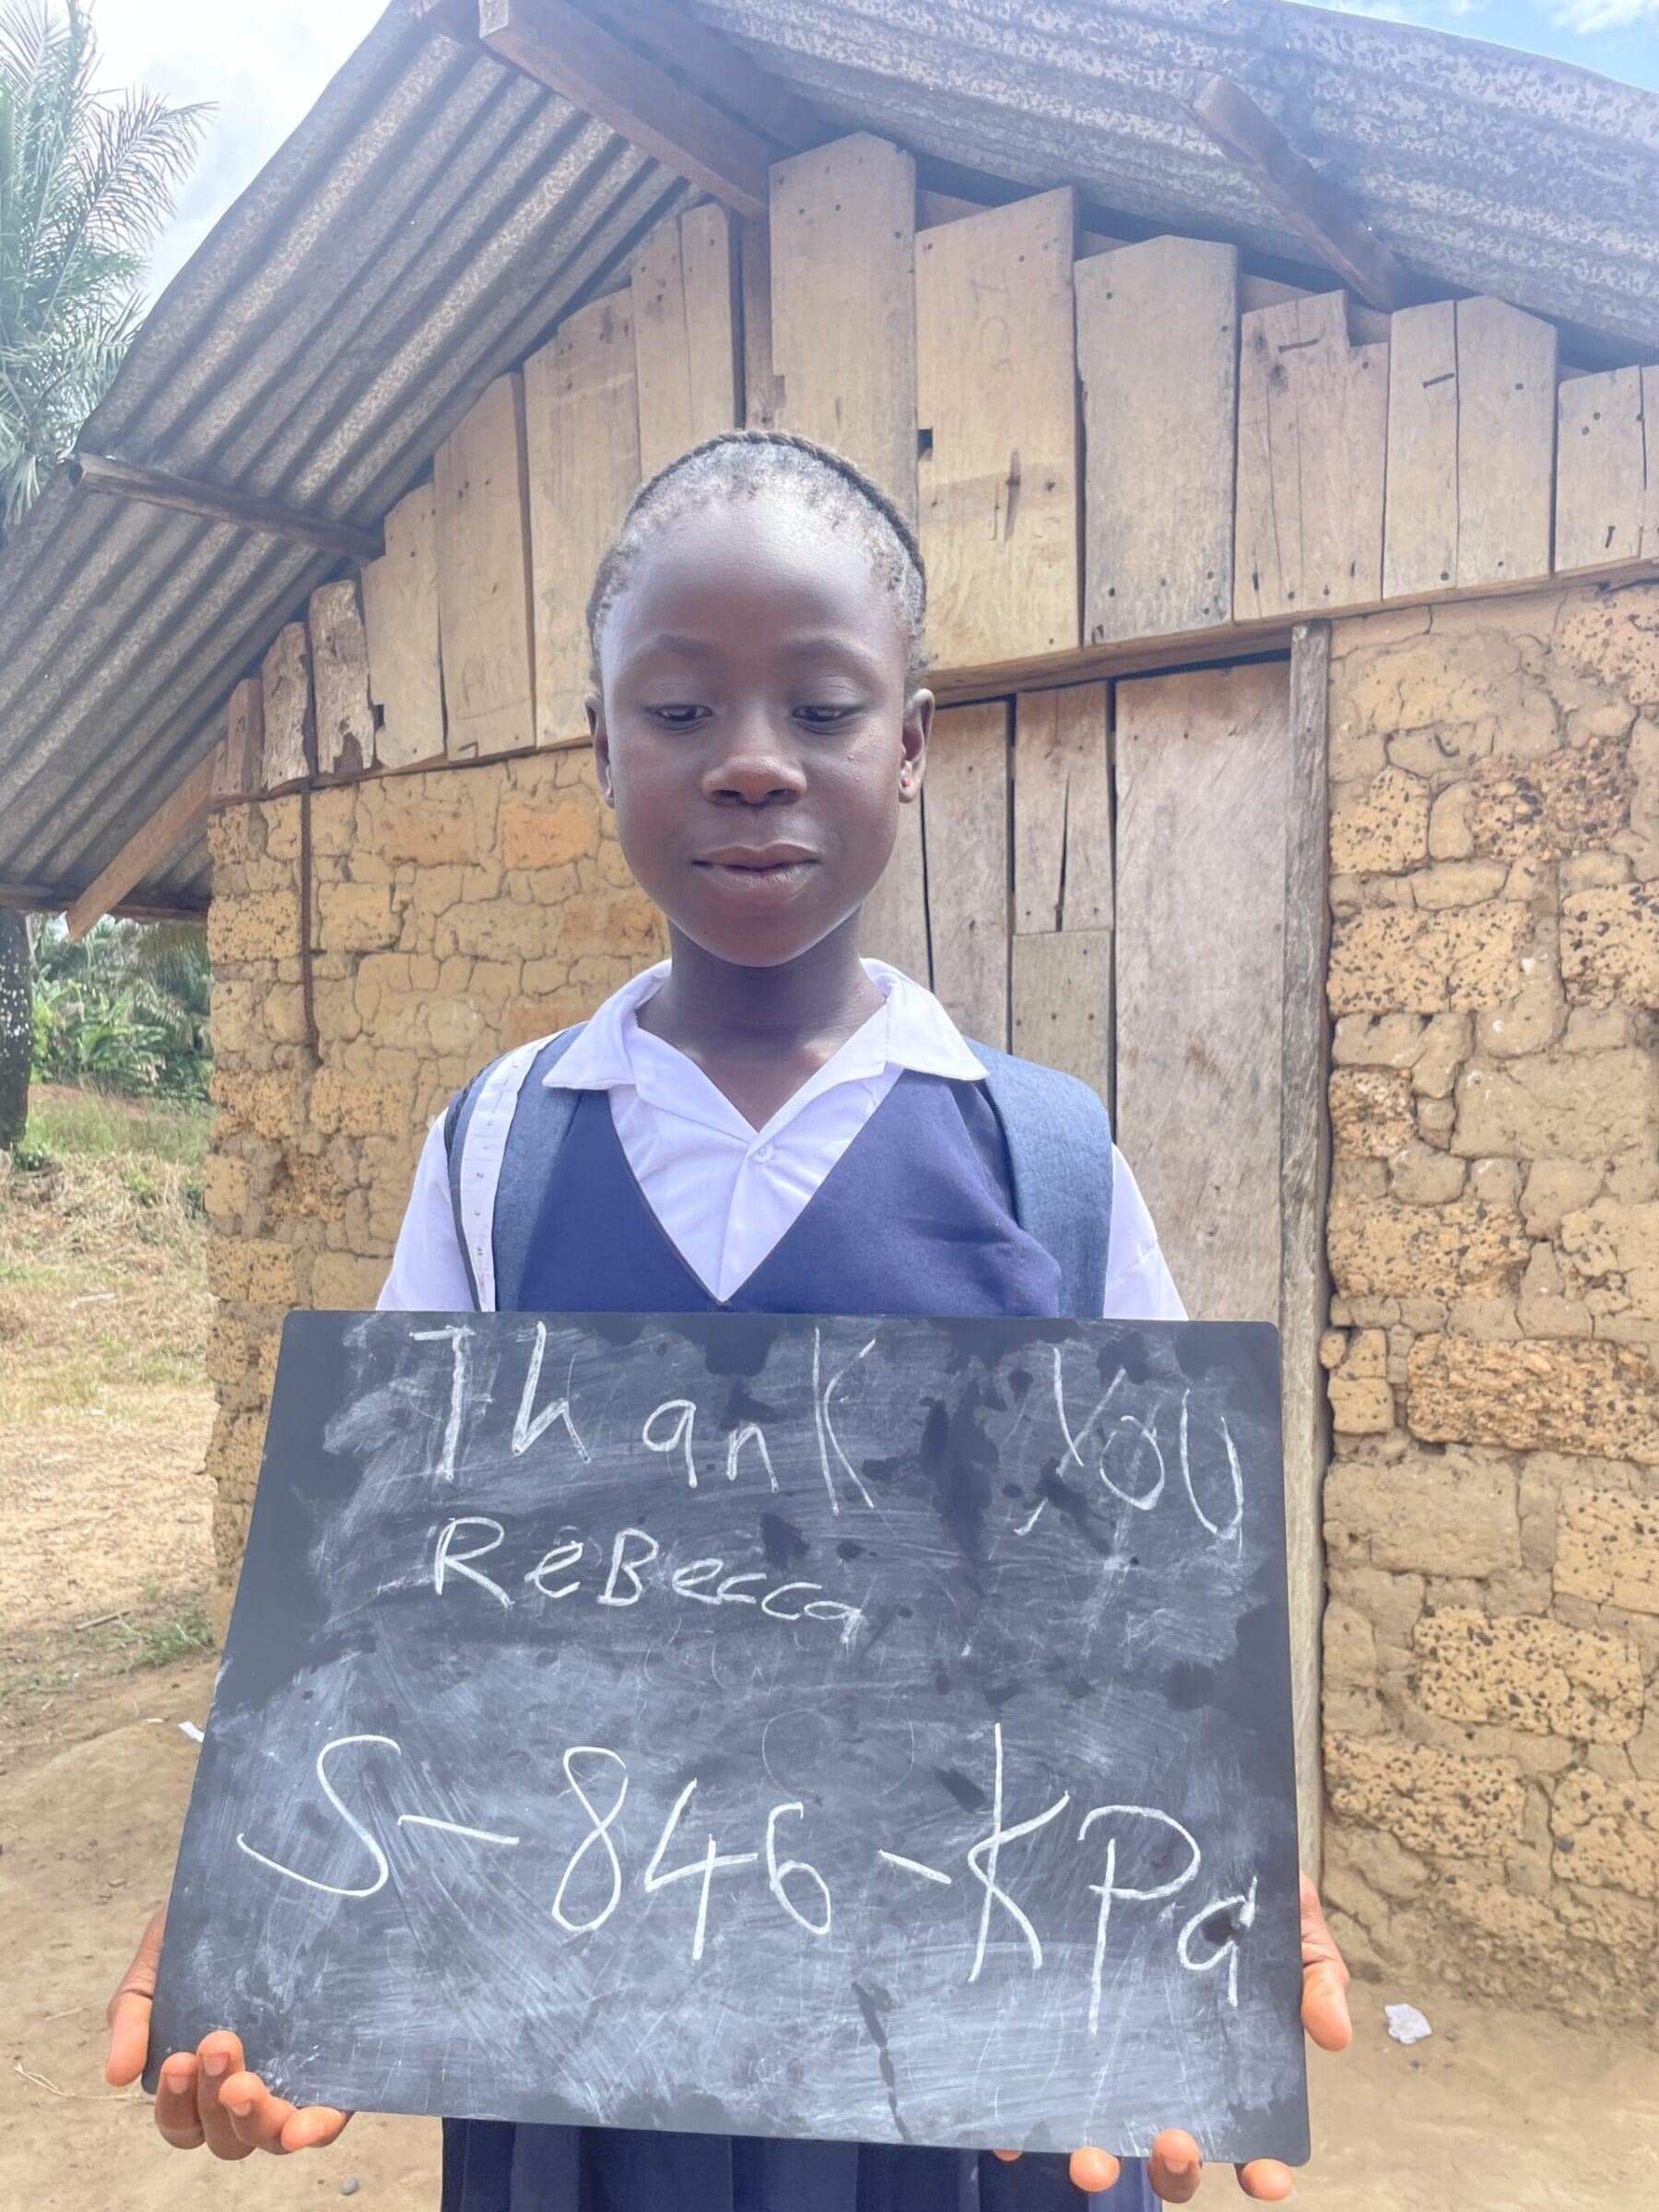 Thank you
ReBecca
S-846-KPa